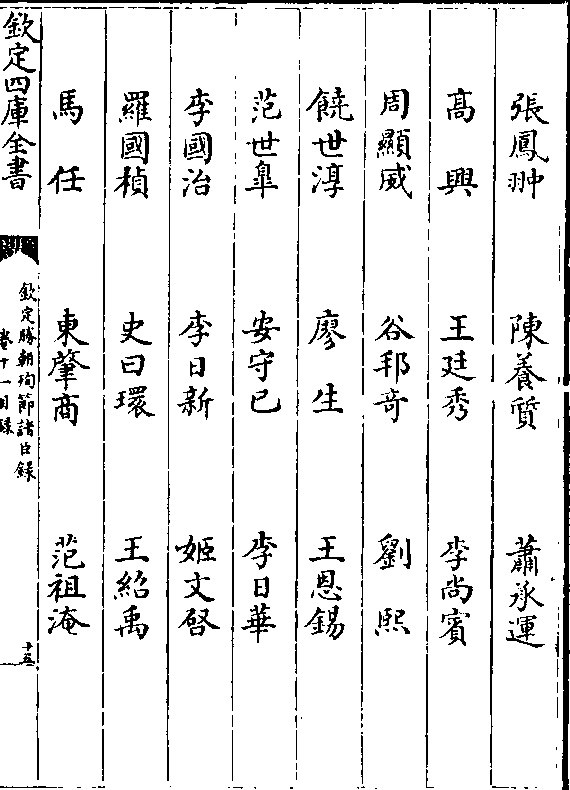 張鳳翀　陳養質　蕭承運
高興　王廷秀　李尚賓
周顯威　谷邦竒　劉熙
饒世淳　廖生　王恩錫
范世臯　安守已　李日華
李國治　李日新　姬文啓
羅國楨　史曰環　王紹禹
馬任　東肇商　范祖淹
欽定四庫全書
欽定勝朝殉節諸臣錄
卷十一目錄
十五